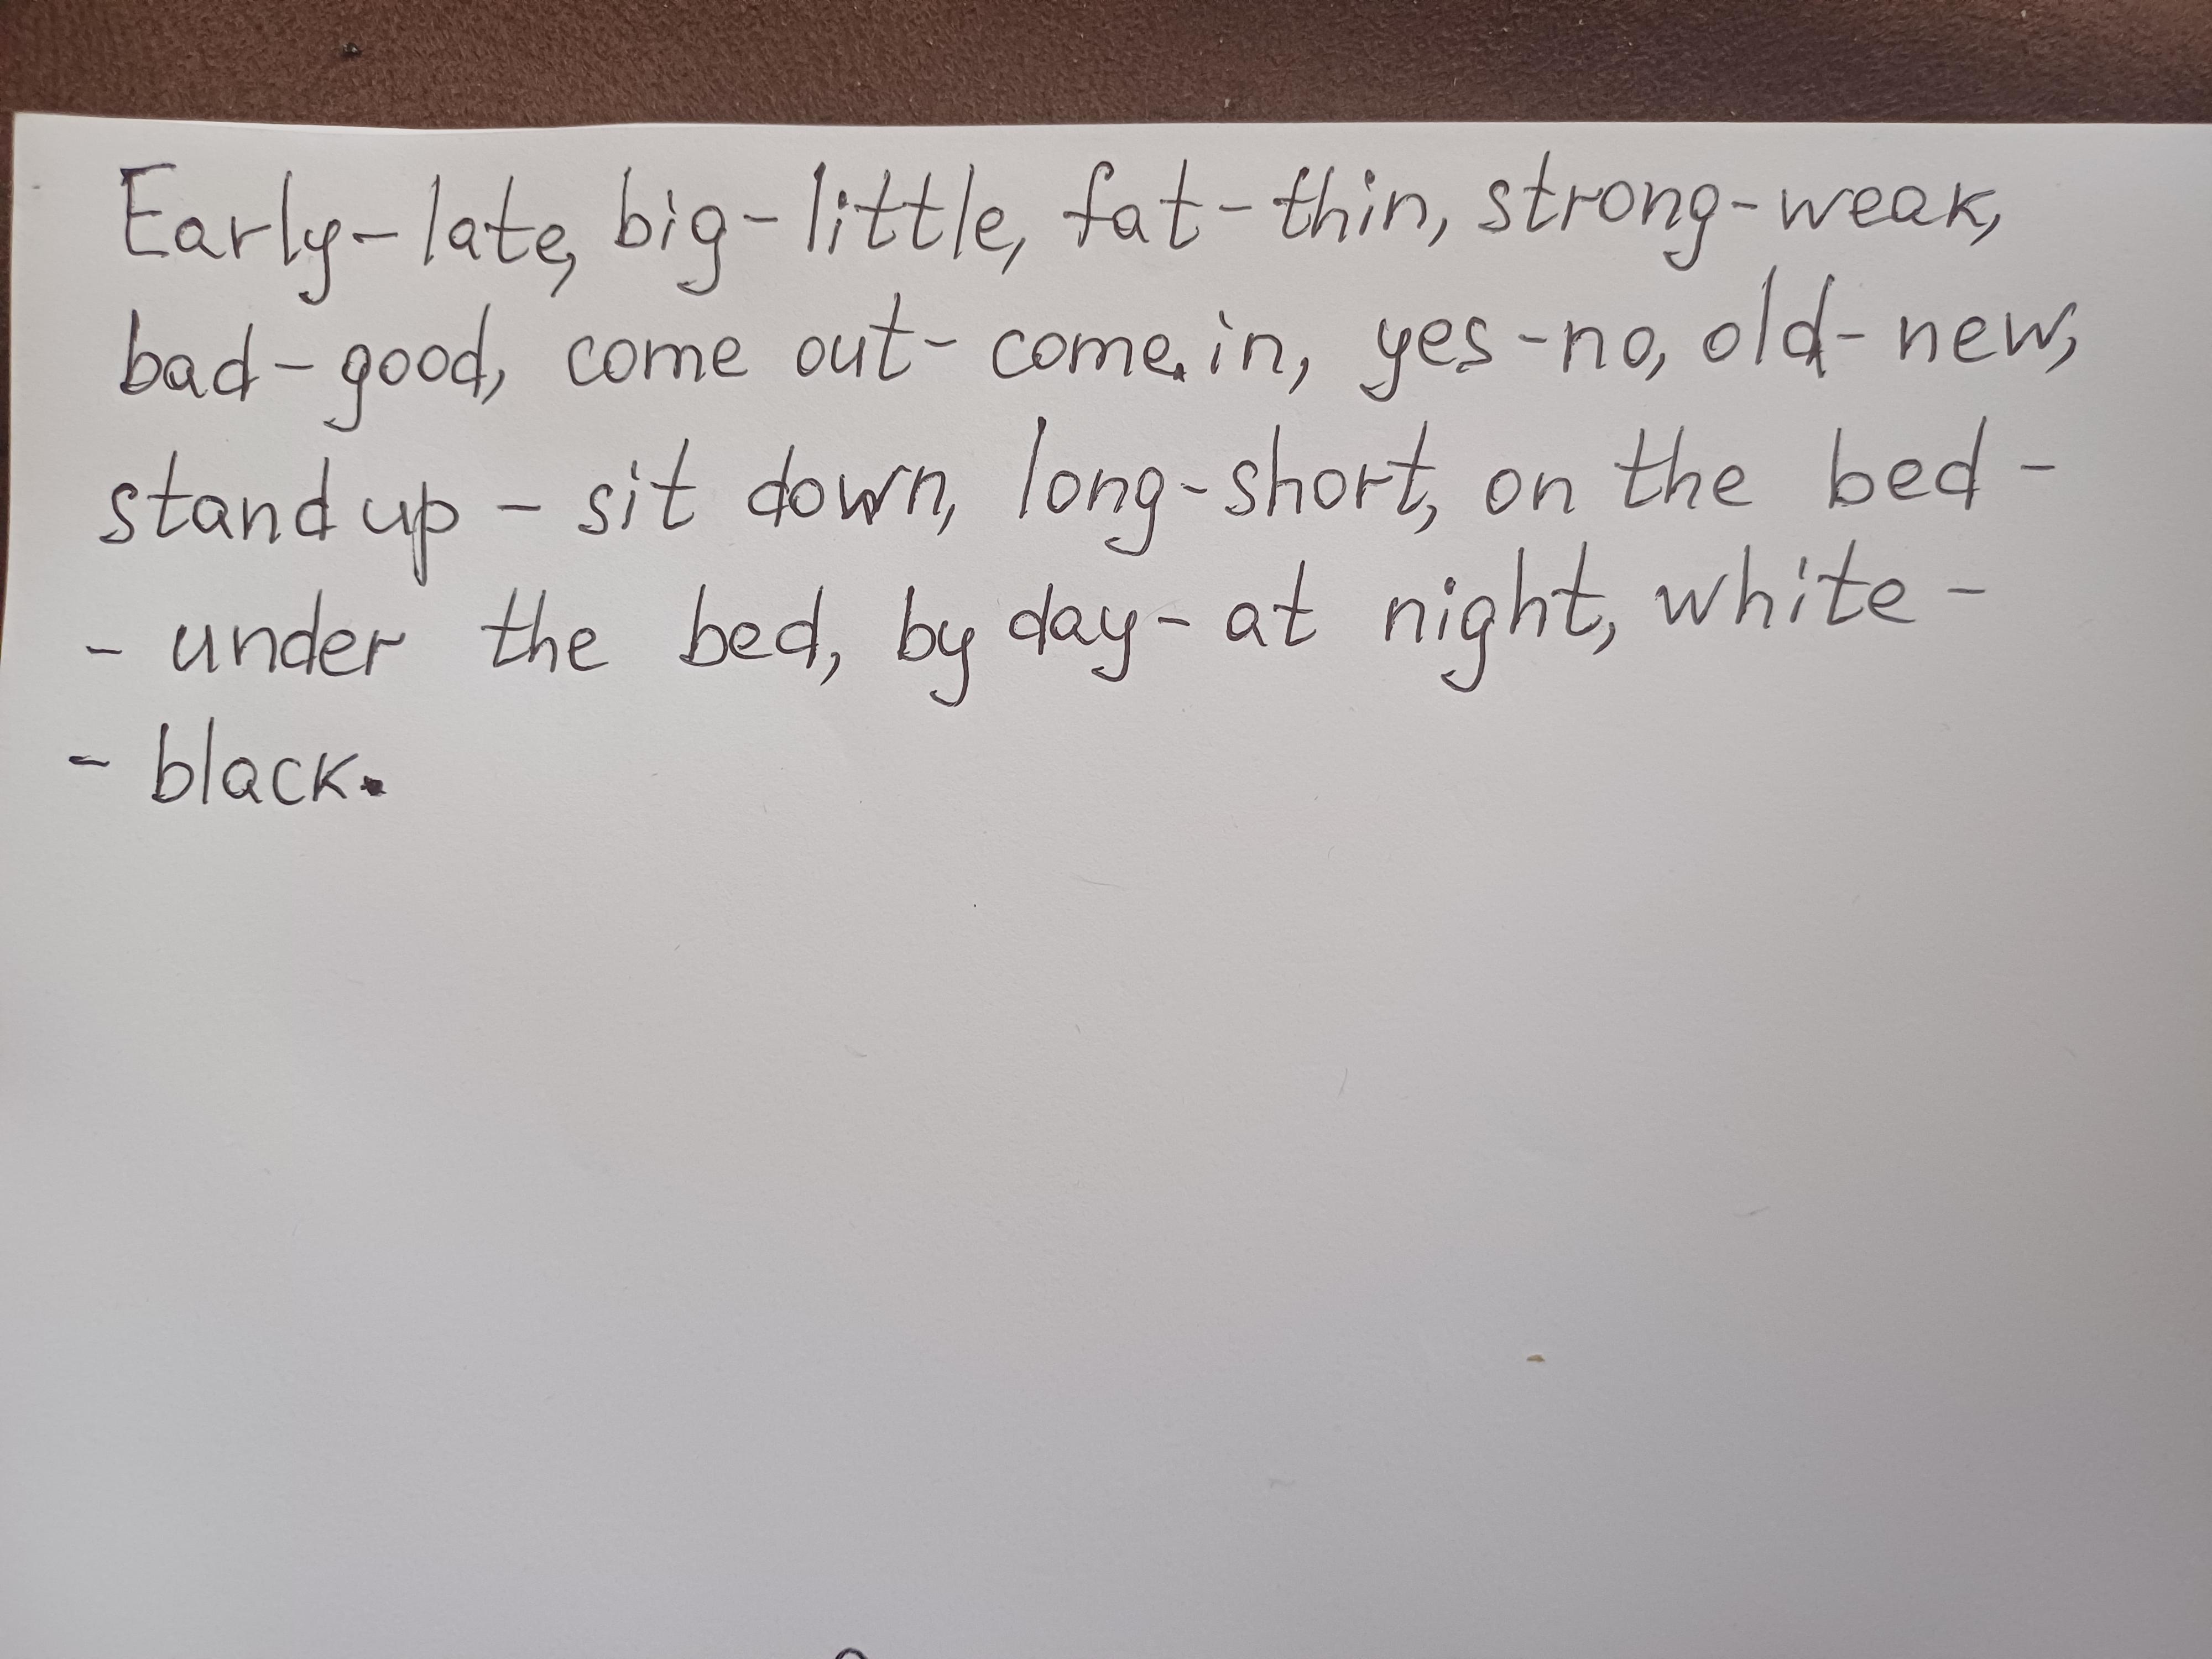 Early-late, big-little, fat-thin, strong-weak,
bad-good, come out-come in, yes-no, old-new,
stand up - sit down, long-short, on the bed -
- under the bed, by day-at night, white -
- black.